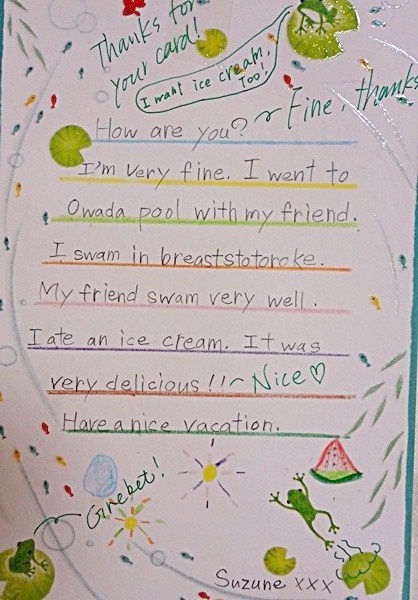 Thanks for
your card!
I want ice cream,
too!
Fine, thanks
How are you?
I'm very fine. I went to
Owada pool with my friend.
I swam in breaststotoroke.
My friend swam very well.
I ate an ice cream. It was
very delicious!! ~ Nice♡
Have a nice vacation.
Great!
Suzune xxx